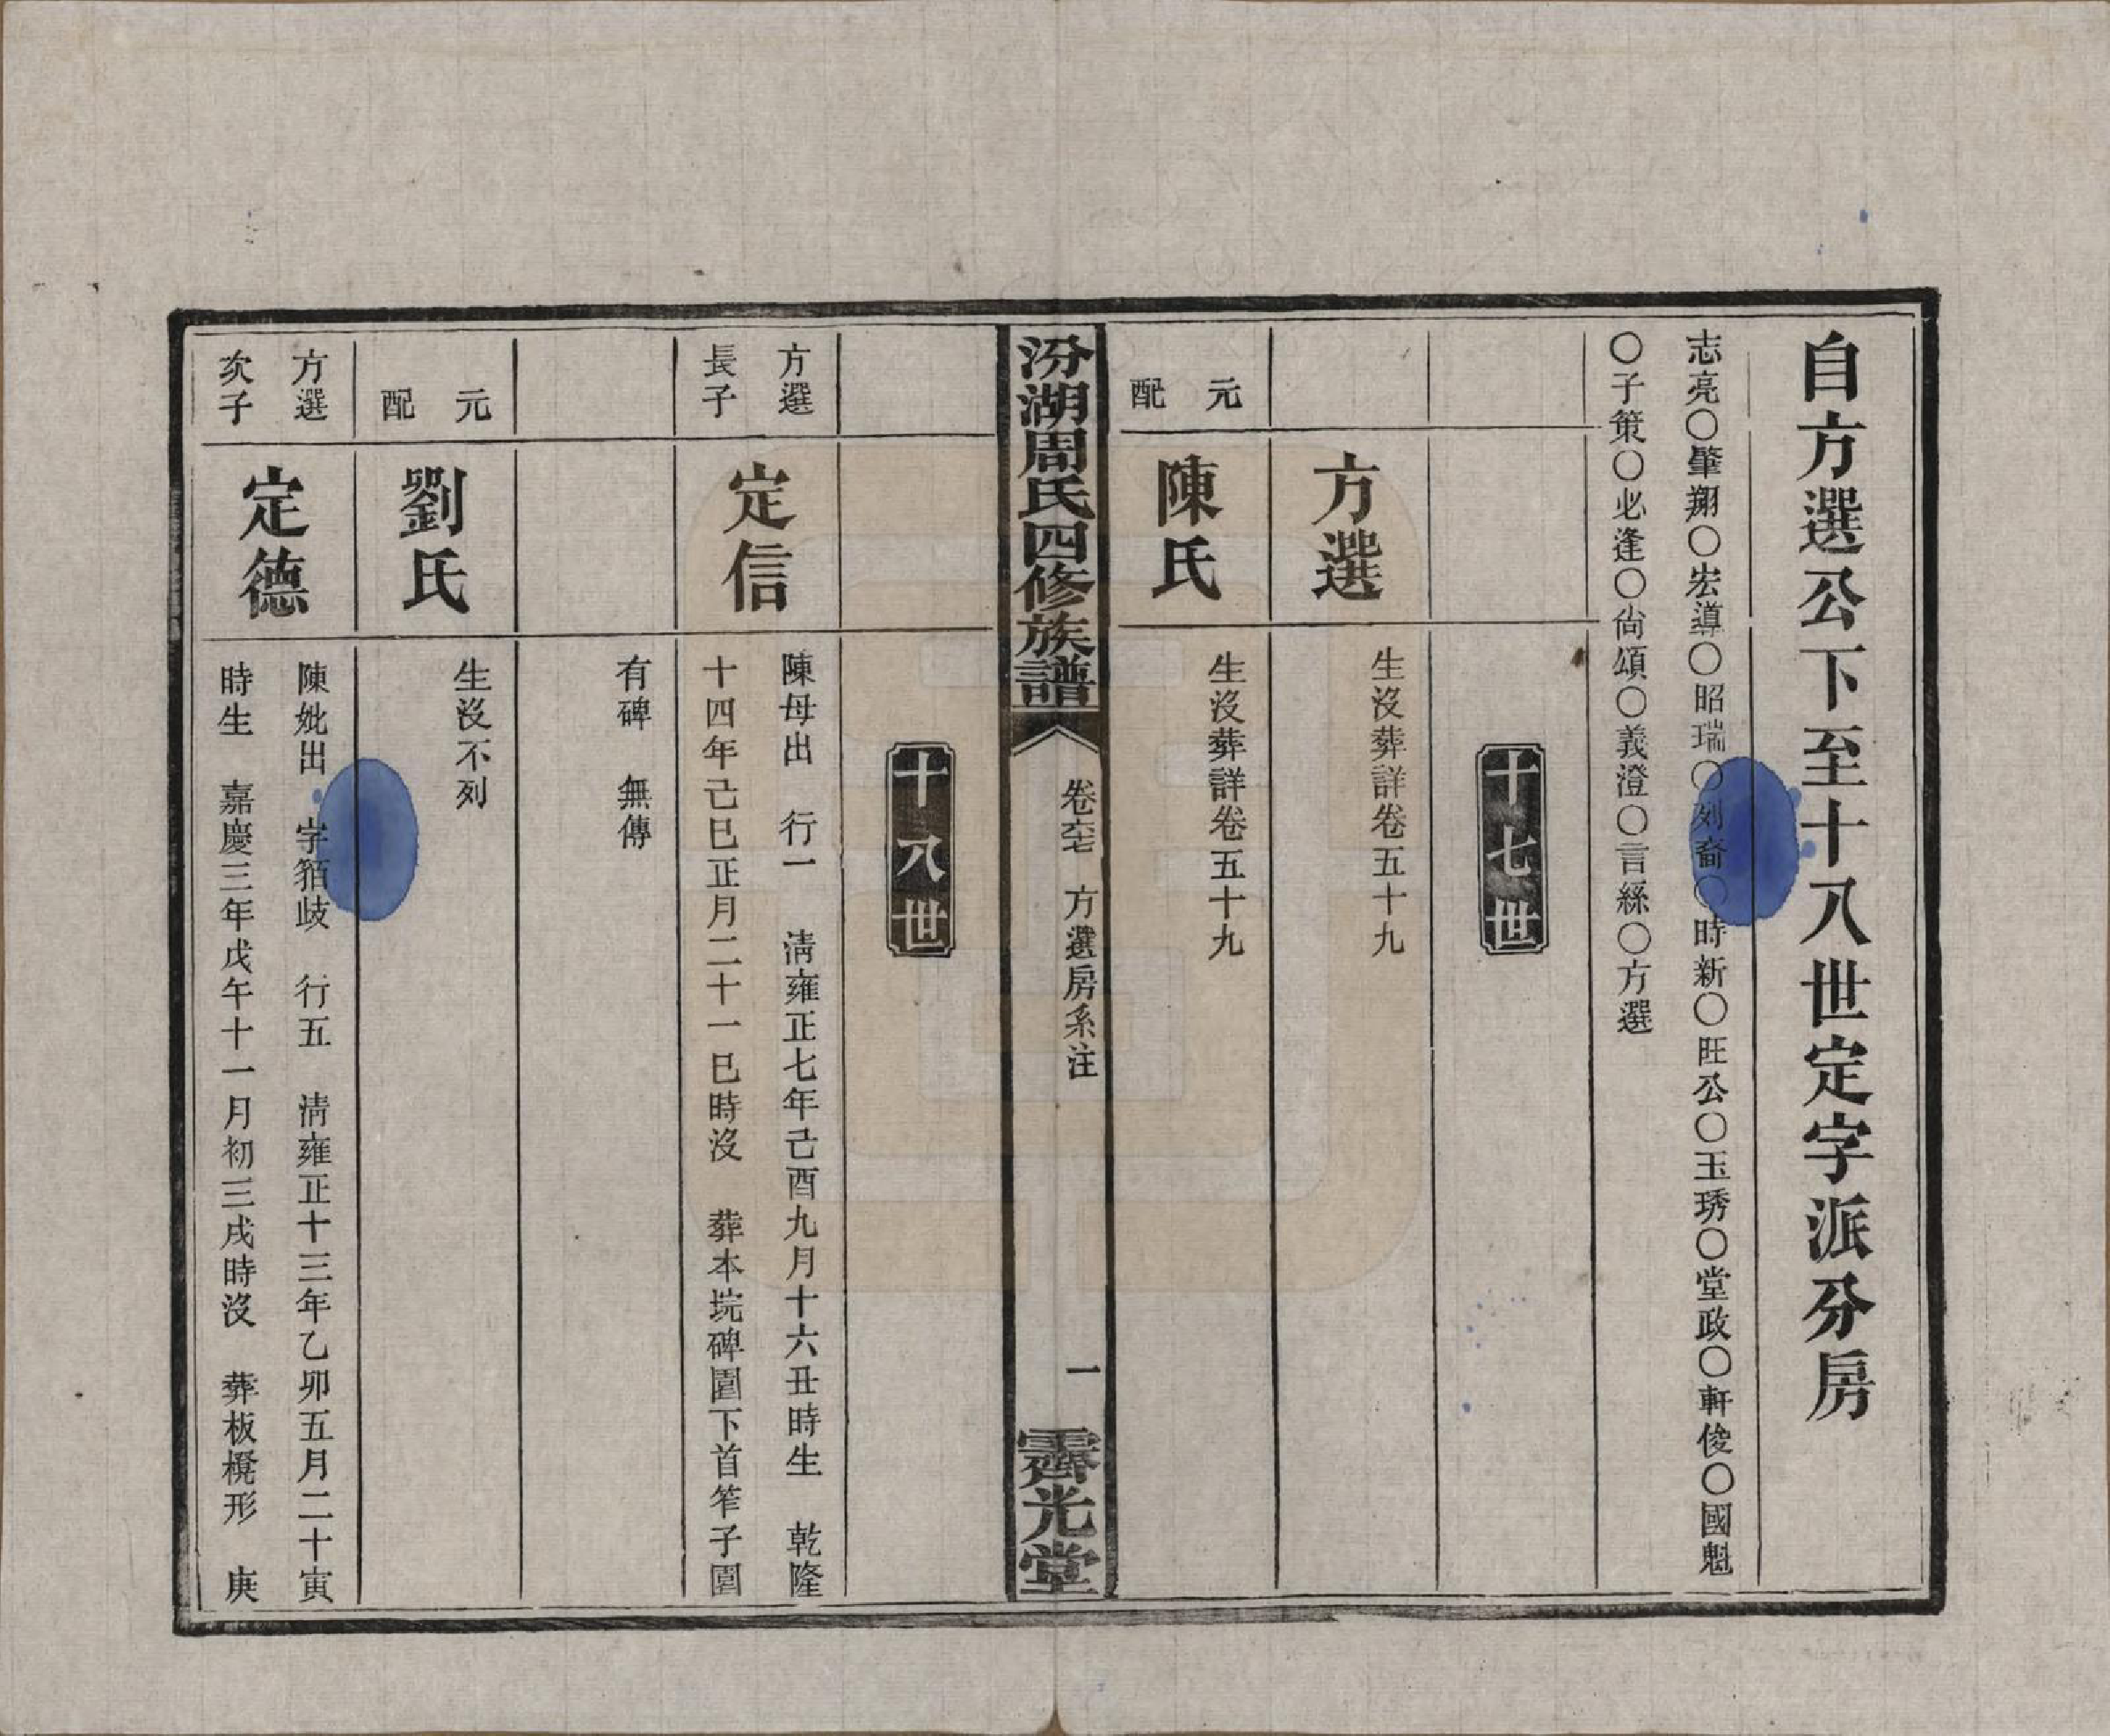 自方選公下至十八世定字派分房
志亮〇肇翔〇宏導〇昭瑞〇列裔〇時新〇旺公〇玉琇〇堂政〇軒俊〇國魁
〇子策〇必逢〇尙頌〇義澄〇言綵〇方選
十七世
方選
生沒葬詳卷五十九
元配
陳氏
生沒葬詳卷五十九
汾湖周氏四修族譜
方選房系注
一
霽光堂
十八世
方選長子
定信
陳母出 行一 淸雍正七年己酉九月十六丑時生 乾隆
十四年己巳正月二十一巳時沒 葬本垸碑園下首笮子園
有碑 無傳
元配
劉氏
生沒不列
方選次子
定德
陳妣出 字 歧 行五 淸雍正十三年乙卯五月二十寅
時生 嘉慶三年戊午十一月初三戌時沒 葬板櫈形 庚